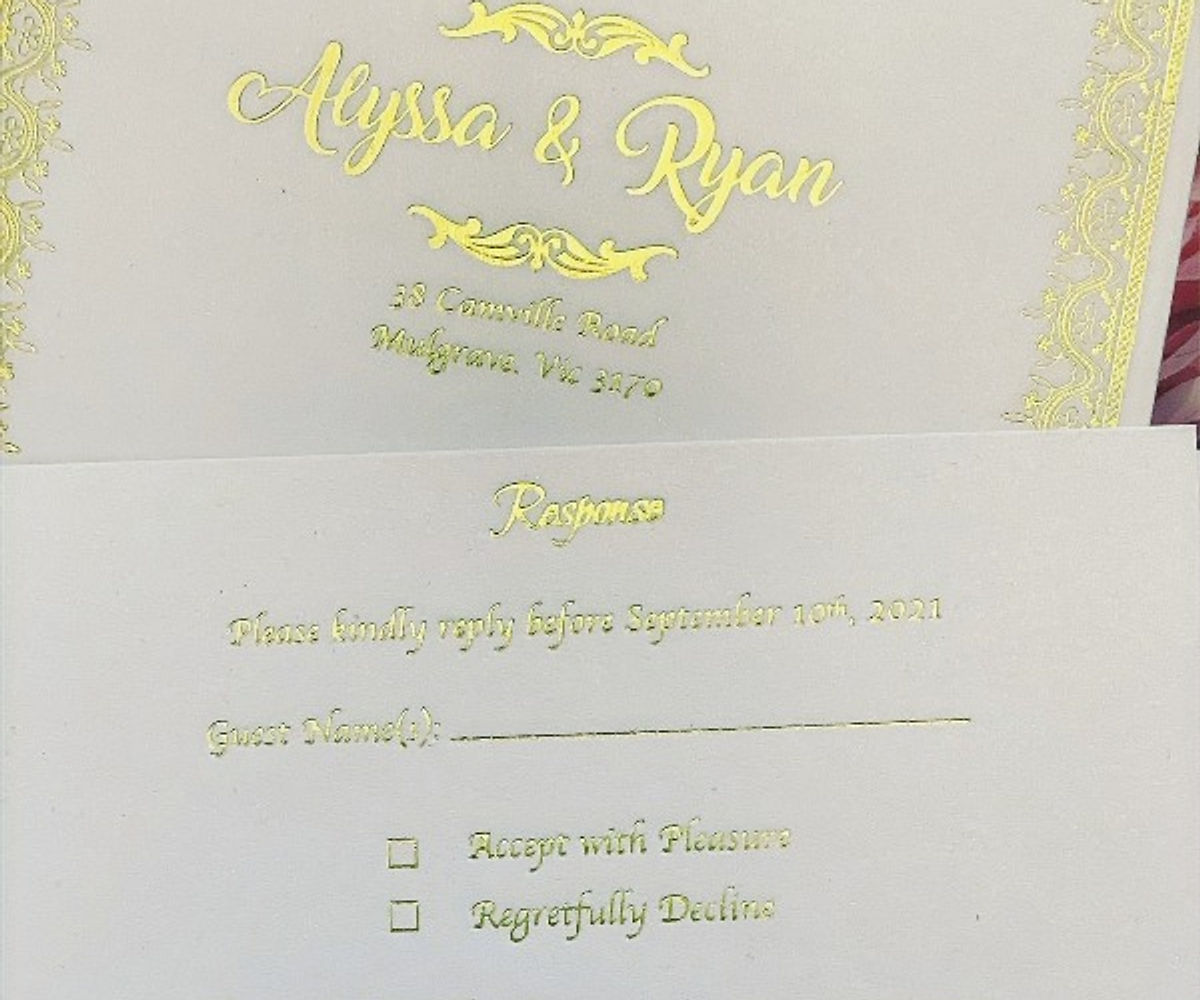 Alyssa & Ryan
38 Camville Road
Mulgrave, Vic 3170
Response
Please kindly reply before September 10th, 2021
Guest Name(s):
Accept with Pleasure
Regretfully Decline